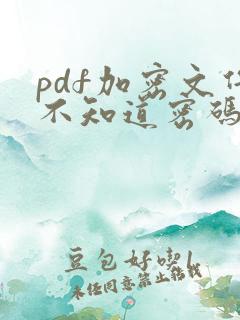 pdf加密文件
不知道密码
豆包好喫
未经同意禁止搭載